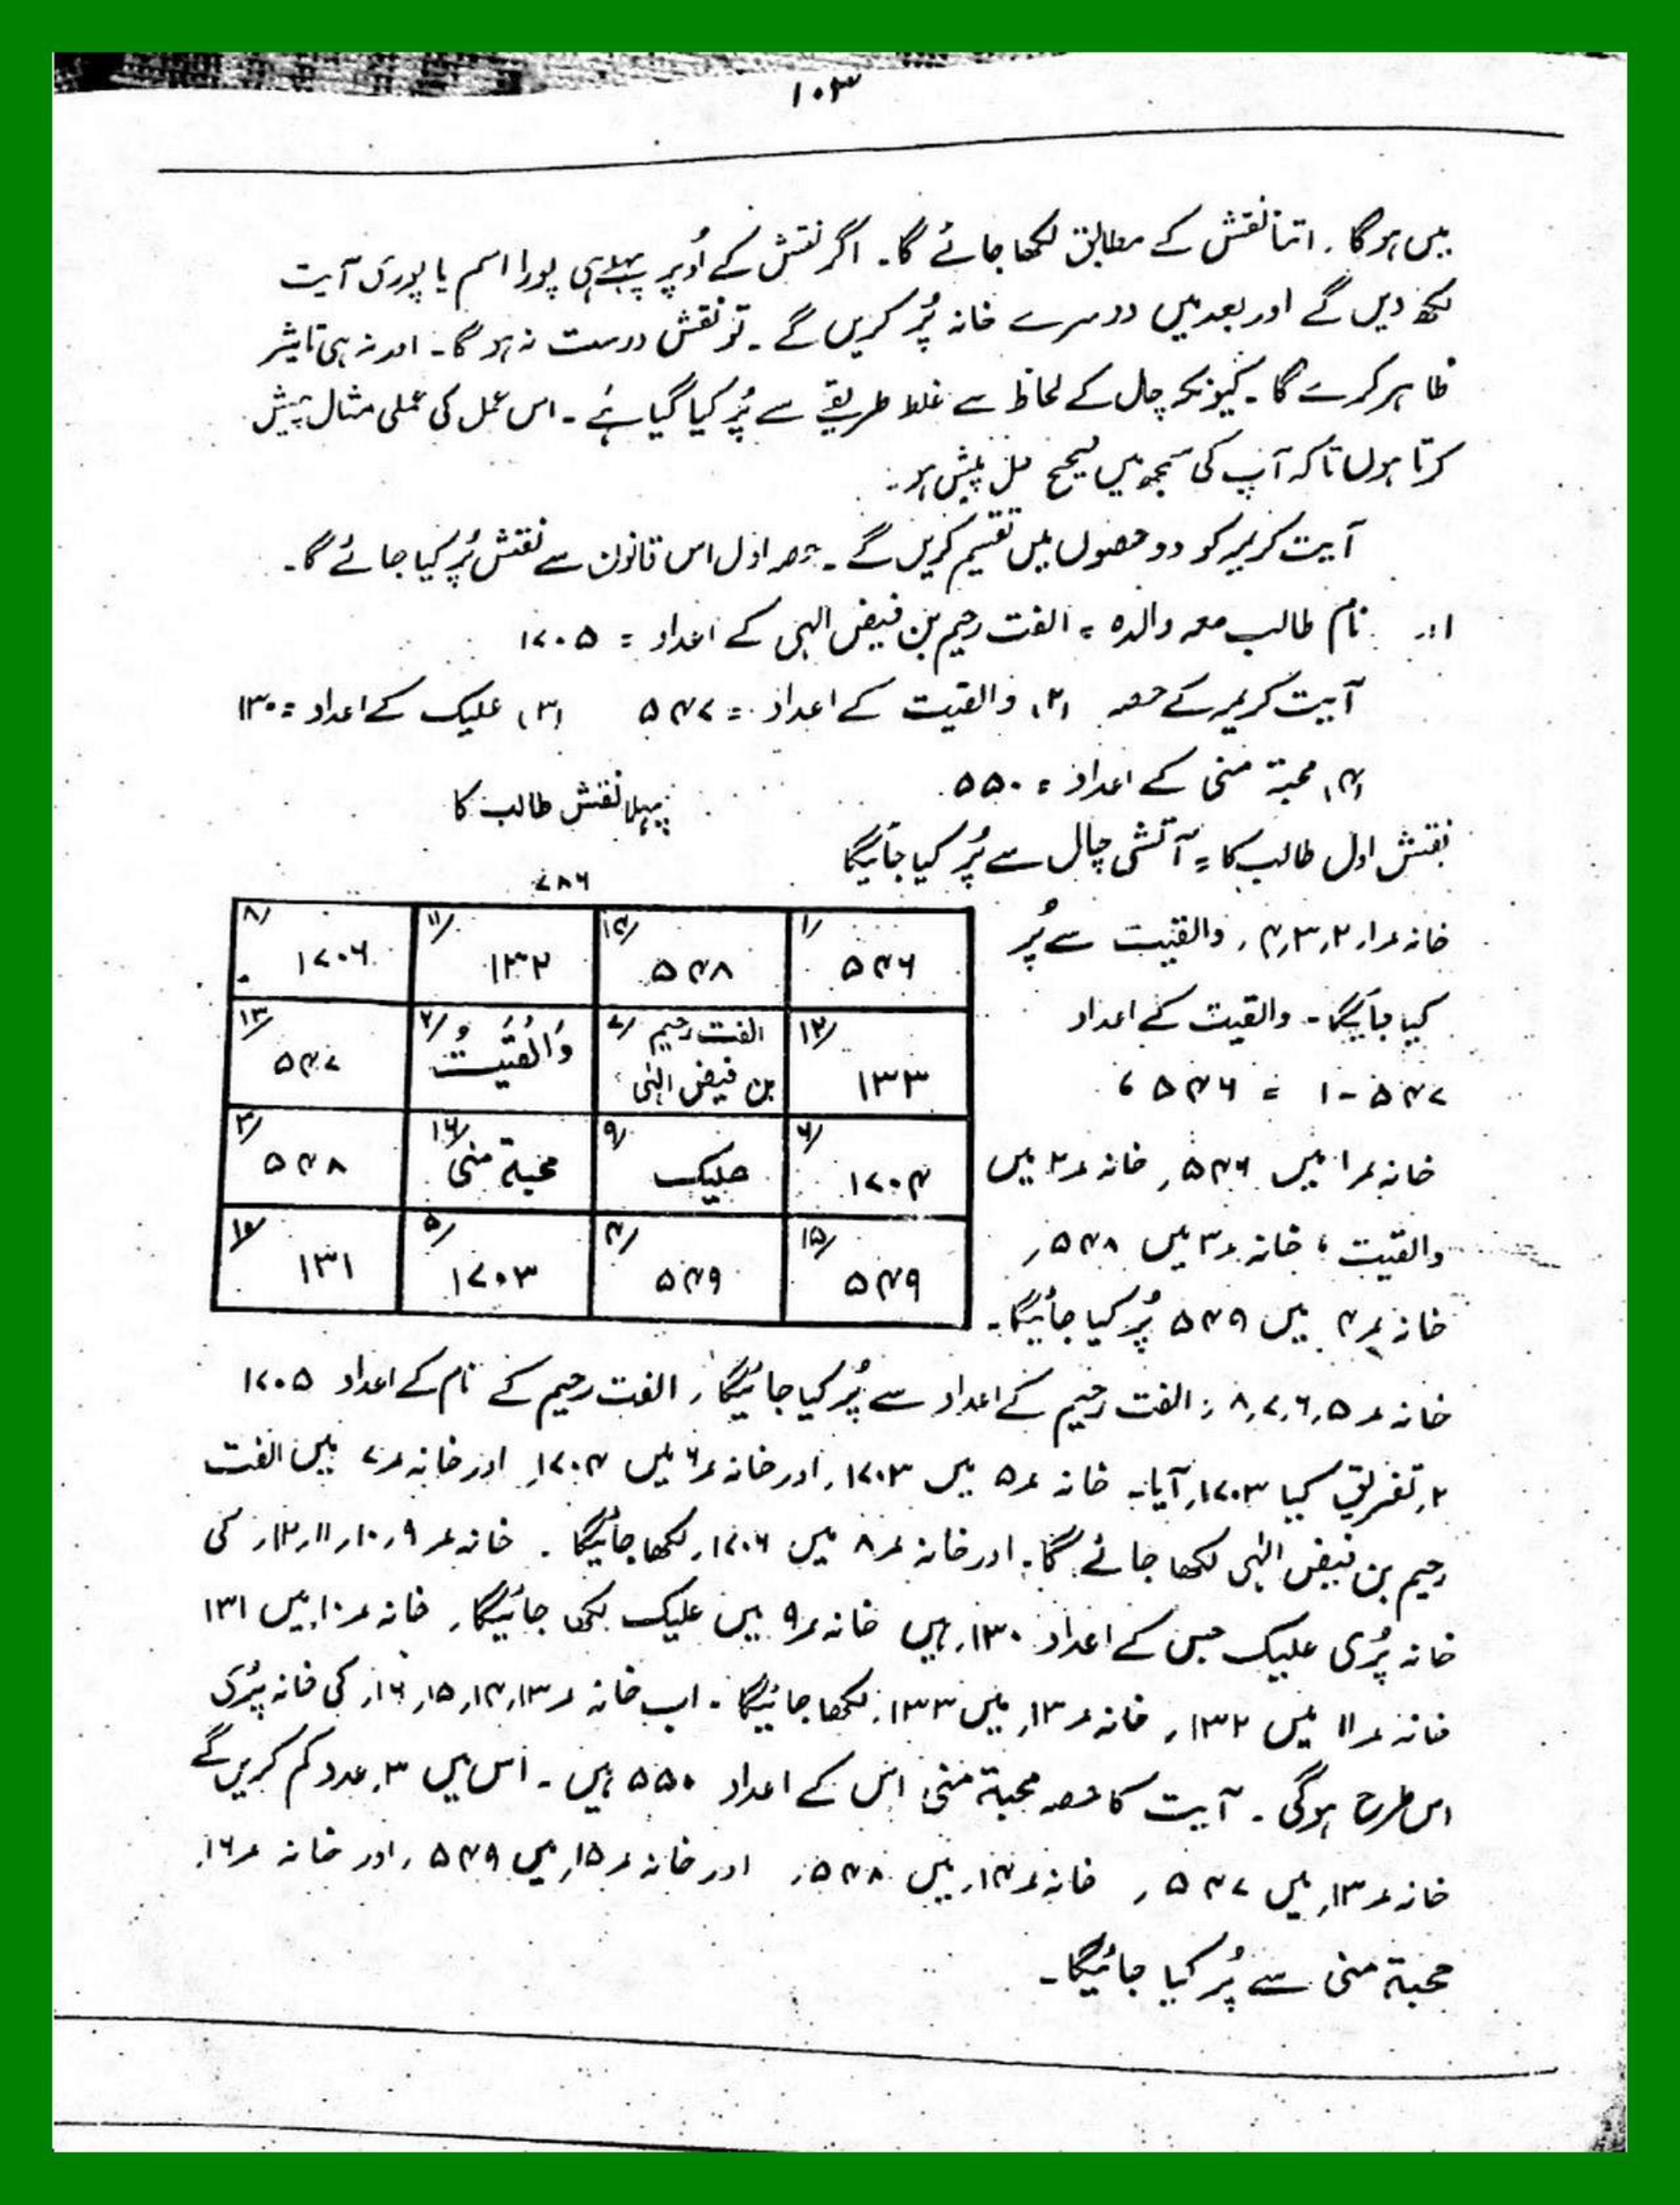 ۱۰۳
میں ہوگا ۔ اتنا نقش کے مطابق لکھا جائے گا۔ اگر نقش کے اُوپر پہلے ہی پورا اسم یا پوری آیت
لکھ دیں گے اور بعد میں دوسرے خانہ پُر کریں گے ۔ تو نقش درست نہ ہو گا۔ اور نہ ہی تاثیر
ظاہر کرے گا۔ کیونکہ چال کے لحاظ سے غلط طریقے سے پُر کیا گیا ہے ۔ اس عمل کی عملی مثال پیش
کرتا ہوں تاکہ آپ کی سمجھ میں صحیح پیش ہو :۔
آیت کریمہ کو دو حصوں میں تقسیم کریں گے ۔ حصہ اوّل اس قانون سے نقش پُر کیا جائے گا۔
۱:۔ نام طالب معہ والدہ = الفت رحیم بن فیض الٰہی کے اعداد = ۱۷۰۵
آیت کریمہ کے حصہ (۲) والقیت کے اعداد = ۵۴۷ (۳) علیک کے اعداد = ۱۳۰
(۴) محبۃ منی کے اعداد = ۵۵۰
پہلا نقش طالب کا
نقش اول طالب کا = آتشی چال سے پُر کیا جائیگا
۷۸۶
۱/ ۵۴۶ ۱۴/ ۵۴۸ ۱۱/ ۱۳۲ ۸/ ۱۷۰۶
۱۲/ ۱۳۳ ۷/ الفت رحیم بن فیض الٰہی ۲/ وَاَلْقَیْتُ ۱۳/ ۵۴۷
۶/ ۱۷۰۴ ۹/ علیک ۱۶/ محبۃ منی ۳/ ۵۴۸
۱۵/ ۵۴۹ ۴/ ۵۴۹ ۵/ ۱۷۰۳ ۱۰/ ۱۳۱
خانہ نمبر ۱، ۲، ۳، ۴، والقیت سے پُر
کیا جائیگا۔ والقیت کے اعداد
۵۴۷ - ۱ = ۵۴۶ ،
خانہ نمبر ۱ میں ۵۴۶ ، خانہ نمبر ۲ میں
والقیت ، خانہ نمبر ۳ میں ۵۴۸ ،
خانہ نمبر ۴ میں ۵۴۹ پُر کیا جائیگا۔
خانہ نمبر ۵، ۶، ۷، ۸ : الفت رحیم کے اعداد سے پُر کیا جائیگا ، الفت رحیم کے نام کے اعداد ۱۷۰۵
۲، تفریق کیا ۱۷۰۳ آیا۔ خانہ نمبر ۵ میں ۱۷۰۳، اور خانہ نمبر ۶ میں ۱۷۰۴، اور خانہ نمبر ۷ میں الفت
رحیم بن فیض الٰہی لکھا جائے گا۔ اور خانہ نمبر ۸ میں ۱۷۰۶، لکھا جائیگا ۔ خانہ نمبر ۹، ۱۰، ۱۱، ۱۲، کی
خانہ پُری علیک جس کے اعداد ۱۳۰، ہیں خانہ نمبر ۹ میں علیک لکھی جائیگا، خانہ نمبر ۱۰ میں ۱۳۱
خانہ نمبر ۱۱ میں ۱۳۲ ، خانہ نمبر ۱۳، میں ۱۳۳، لکھا جائیگا ۔ اب خانہ نمبر ۱۳، ۱۴، ۱۵، ۱۶، کی خانہ پُری
اس طرح ہوگی ۔ آیت کا حصہ محبۃ منی اس کے اعداد ۵۵۰ ہیں ۔ اس میں ۳، عدد کم کریں گے
خانہ نمبر ۱۳، میں ۵۴۷ ، خانہ نمبر ۱۴، میں ۵۴۸ ، اور خانہ نمبر ۱۵، میں ۵۴۹ ، اور خانہ نمبر ۱۶،
محبۃ منی سے پُر کیا جائیگا۔